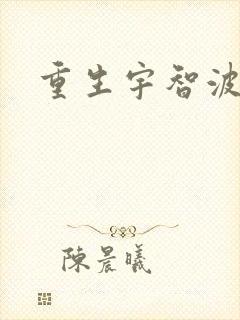 重生宇智波
陳晨曦